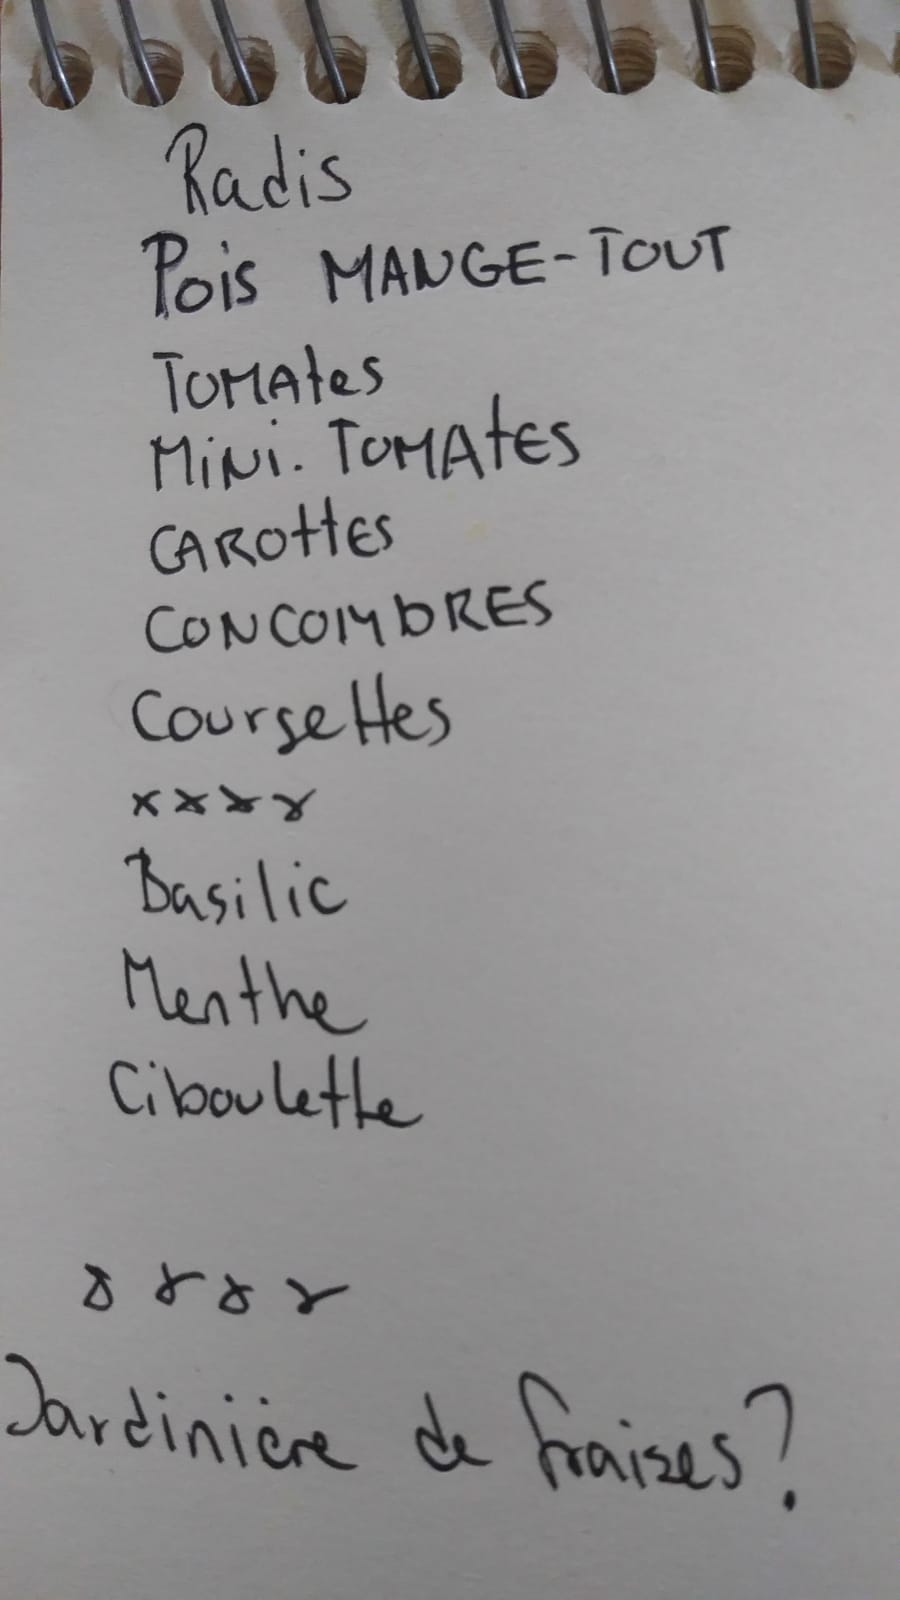 Radis
Pois MANGE-TOUT
TOMAtes
MiNi. TOMAtES
CAROttES
CONCOMbRES
Coursettes
xxxx
Basilic
Menthe
Ciboulette
xxxx
Jardinière de fraises?